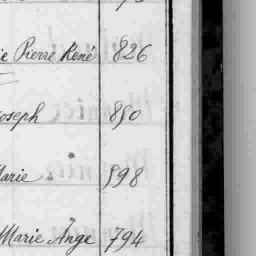 ie Pierre René 826
oseph 850
arie 598
Marie Ange 794